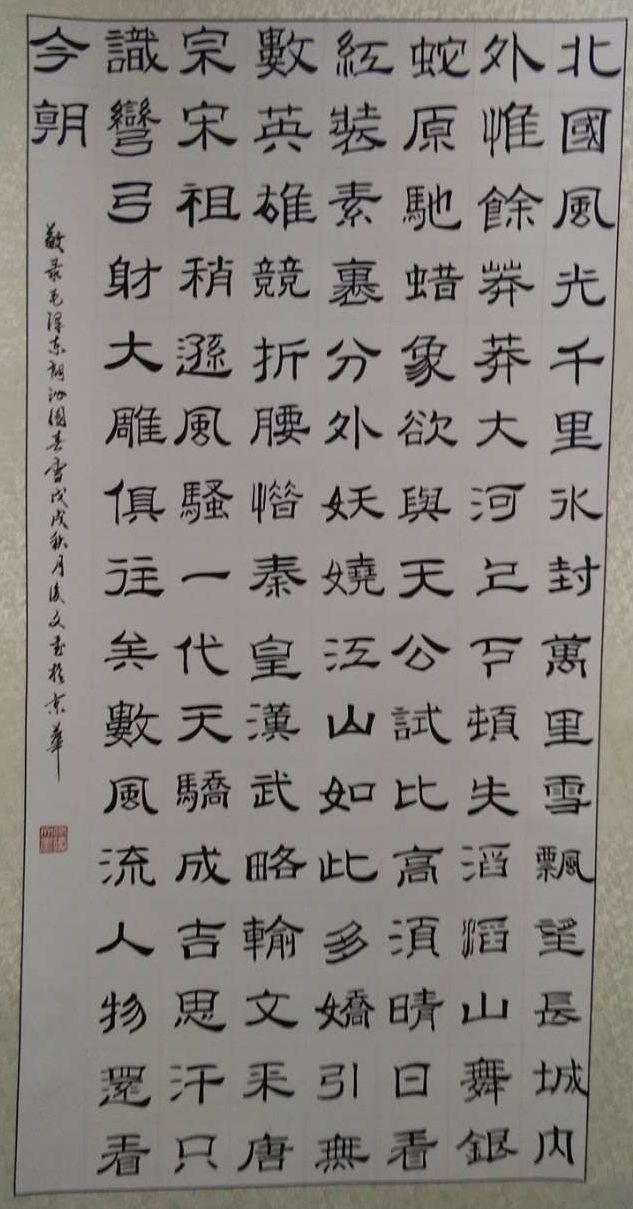 北國風光千里冰封萬里雪飄望長城内
外惟餘莽莽大河上下頓失滔滔山舞銀
蛇原馳蜡象欲與天公試比高須晴日看
紅裝素裹分外妖嬈江山如此多嬌引無
數英雄競折腰惜秦皇漢武略輸文采唐
宗宋祖稍遜風騷一代天驕成吉思汗只
識彎弓射大雕俱往矣數風流人物還看
今朝
敬录毛泽东詞沁園春雪戊戌秋月文书於京華